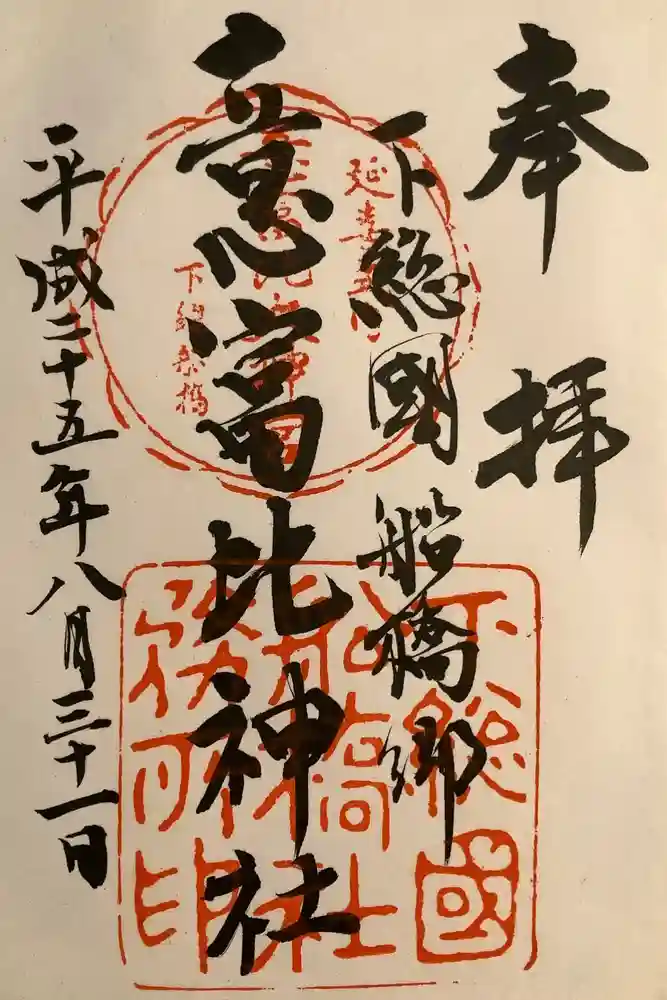 奉拝
下総國船橋郷
意富比神社
平成二十五年八月三十一日
延喜式内
意富比神社
下総船橋
下総國
船橋
神社
務所印